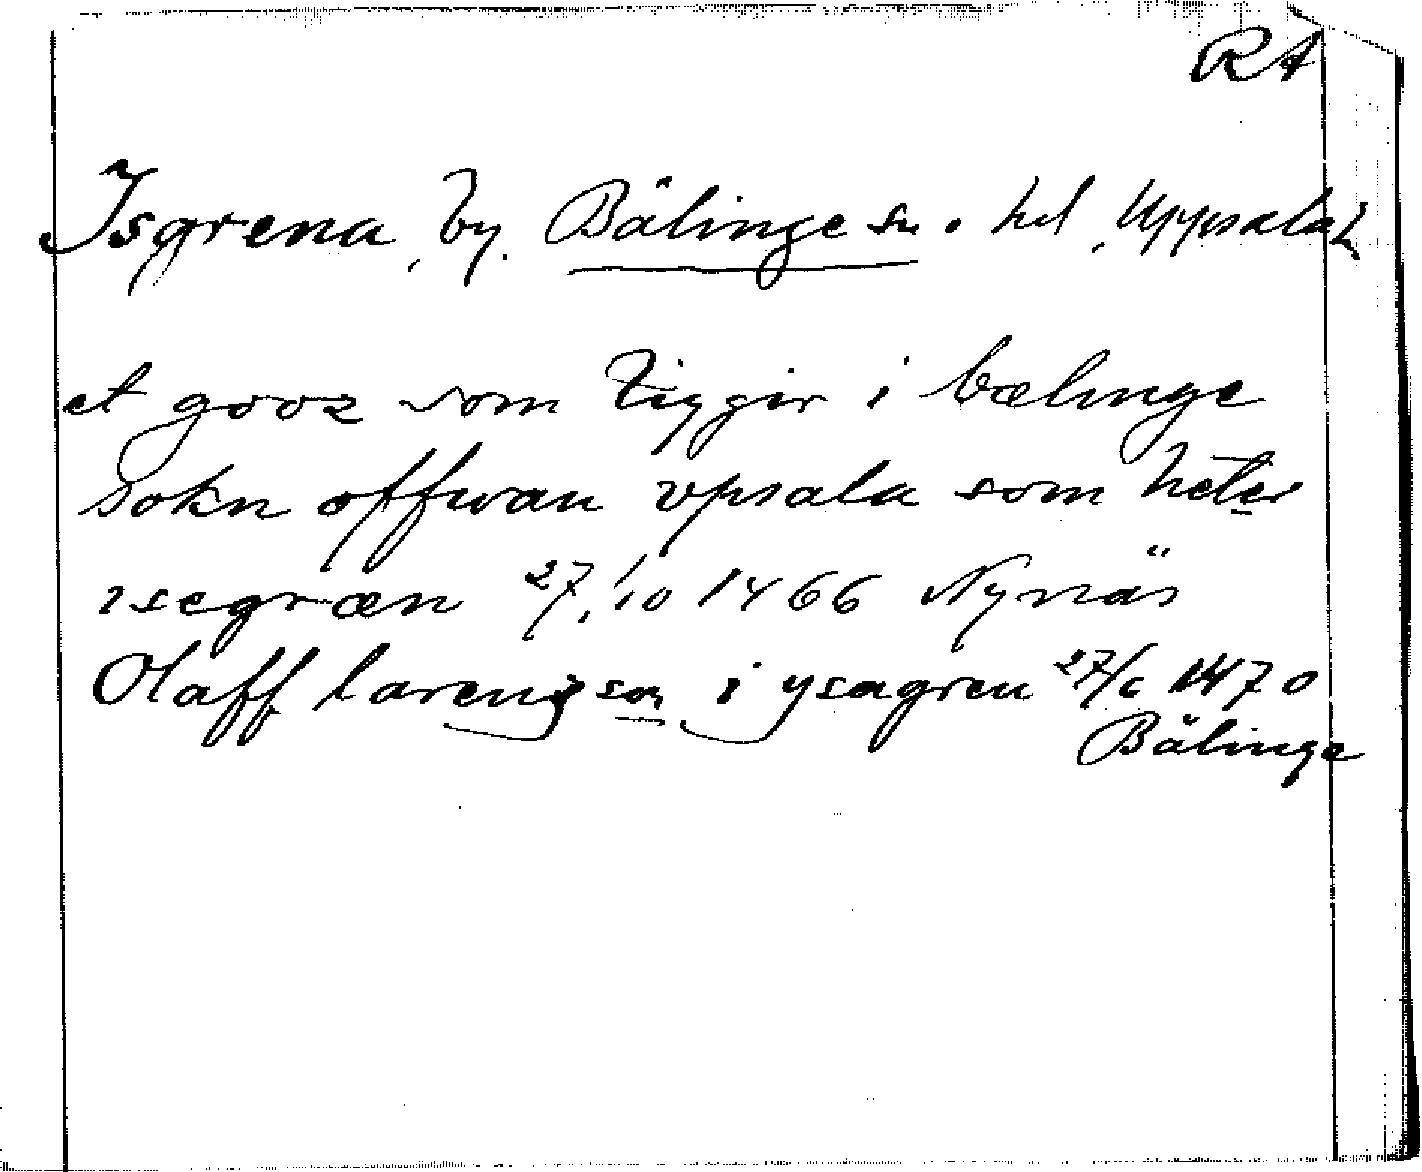 RA
Isgrena, by. Bälinge sn o. hd, Uppsala l
et gooz som liggir i bælinge
sokn offwan vpsala som heter
isegræn 27/10 1466 Nynäs
Olaff larensson i ysagren 27/6 1470
Bälinge